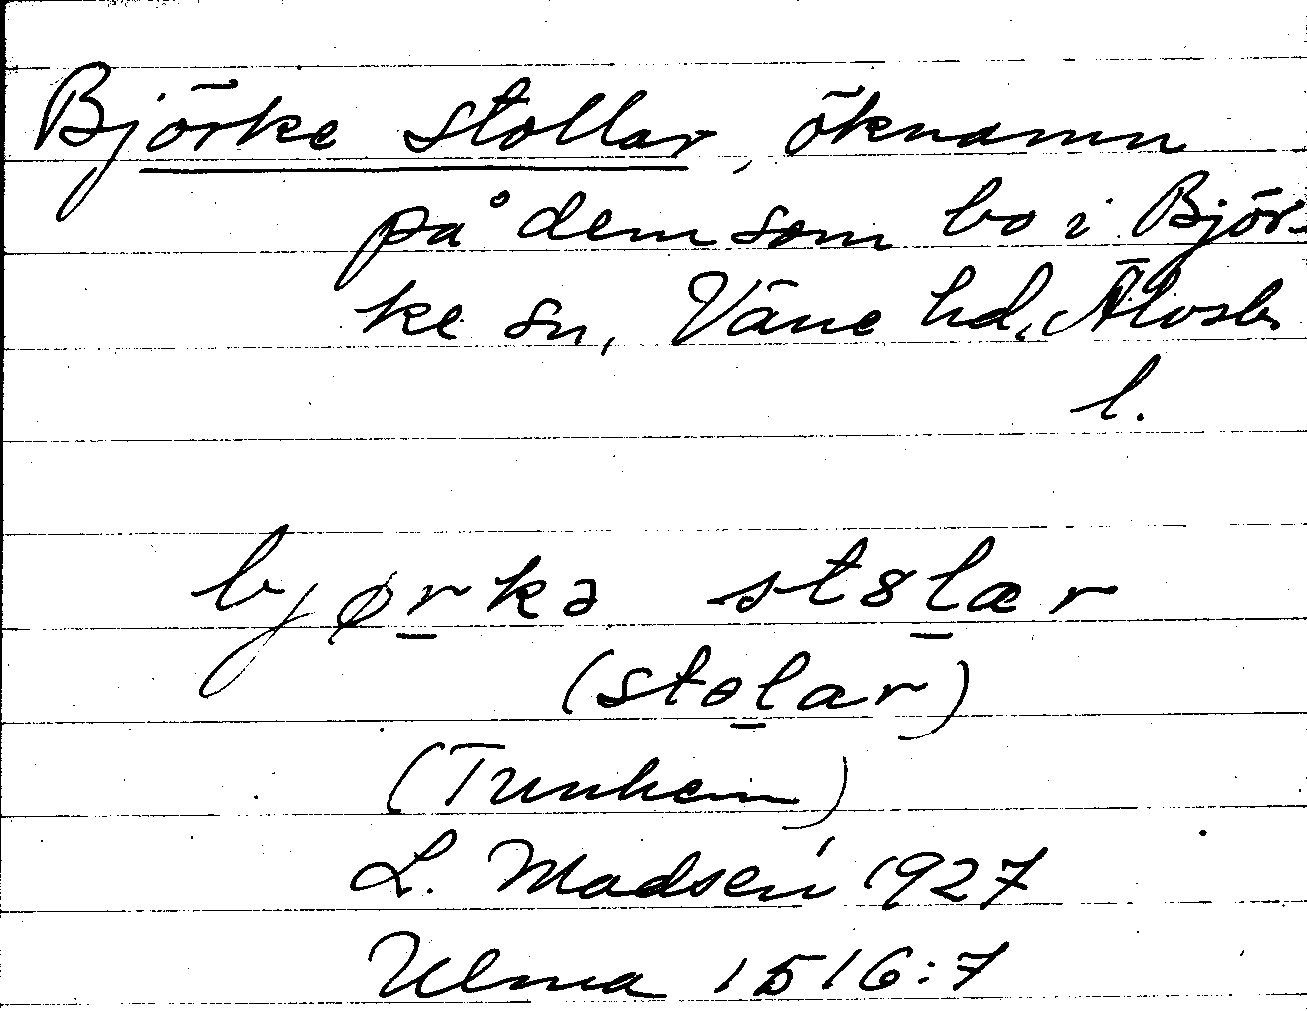 Björke stollar, öknamn
på dem som bo i Björ-
ke sn, Väne hd, Älvsb.
l.
bjørkə st8lær
(stolar)
(Tunhem)
L. Madsén 1927
Ulma 1516:7